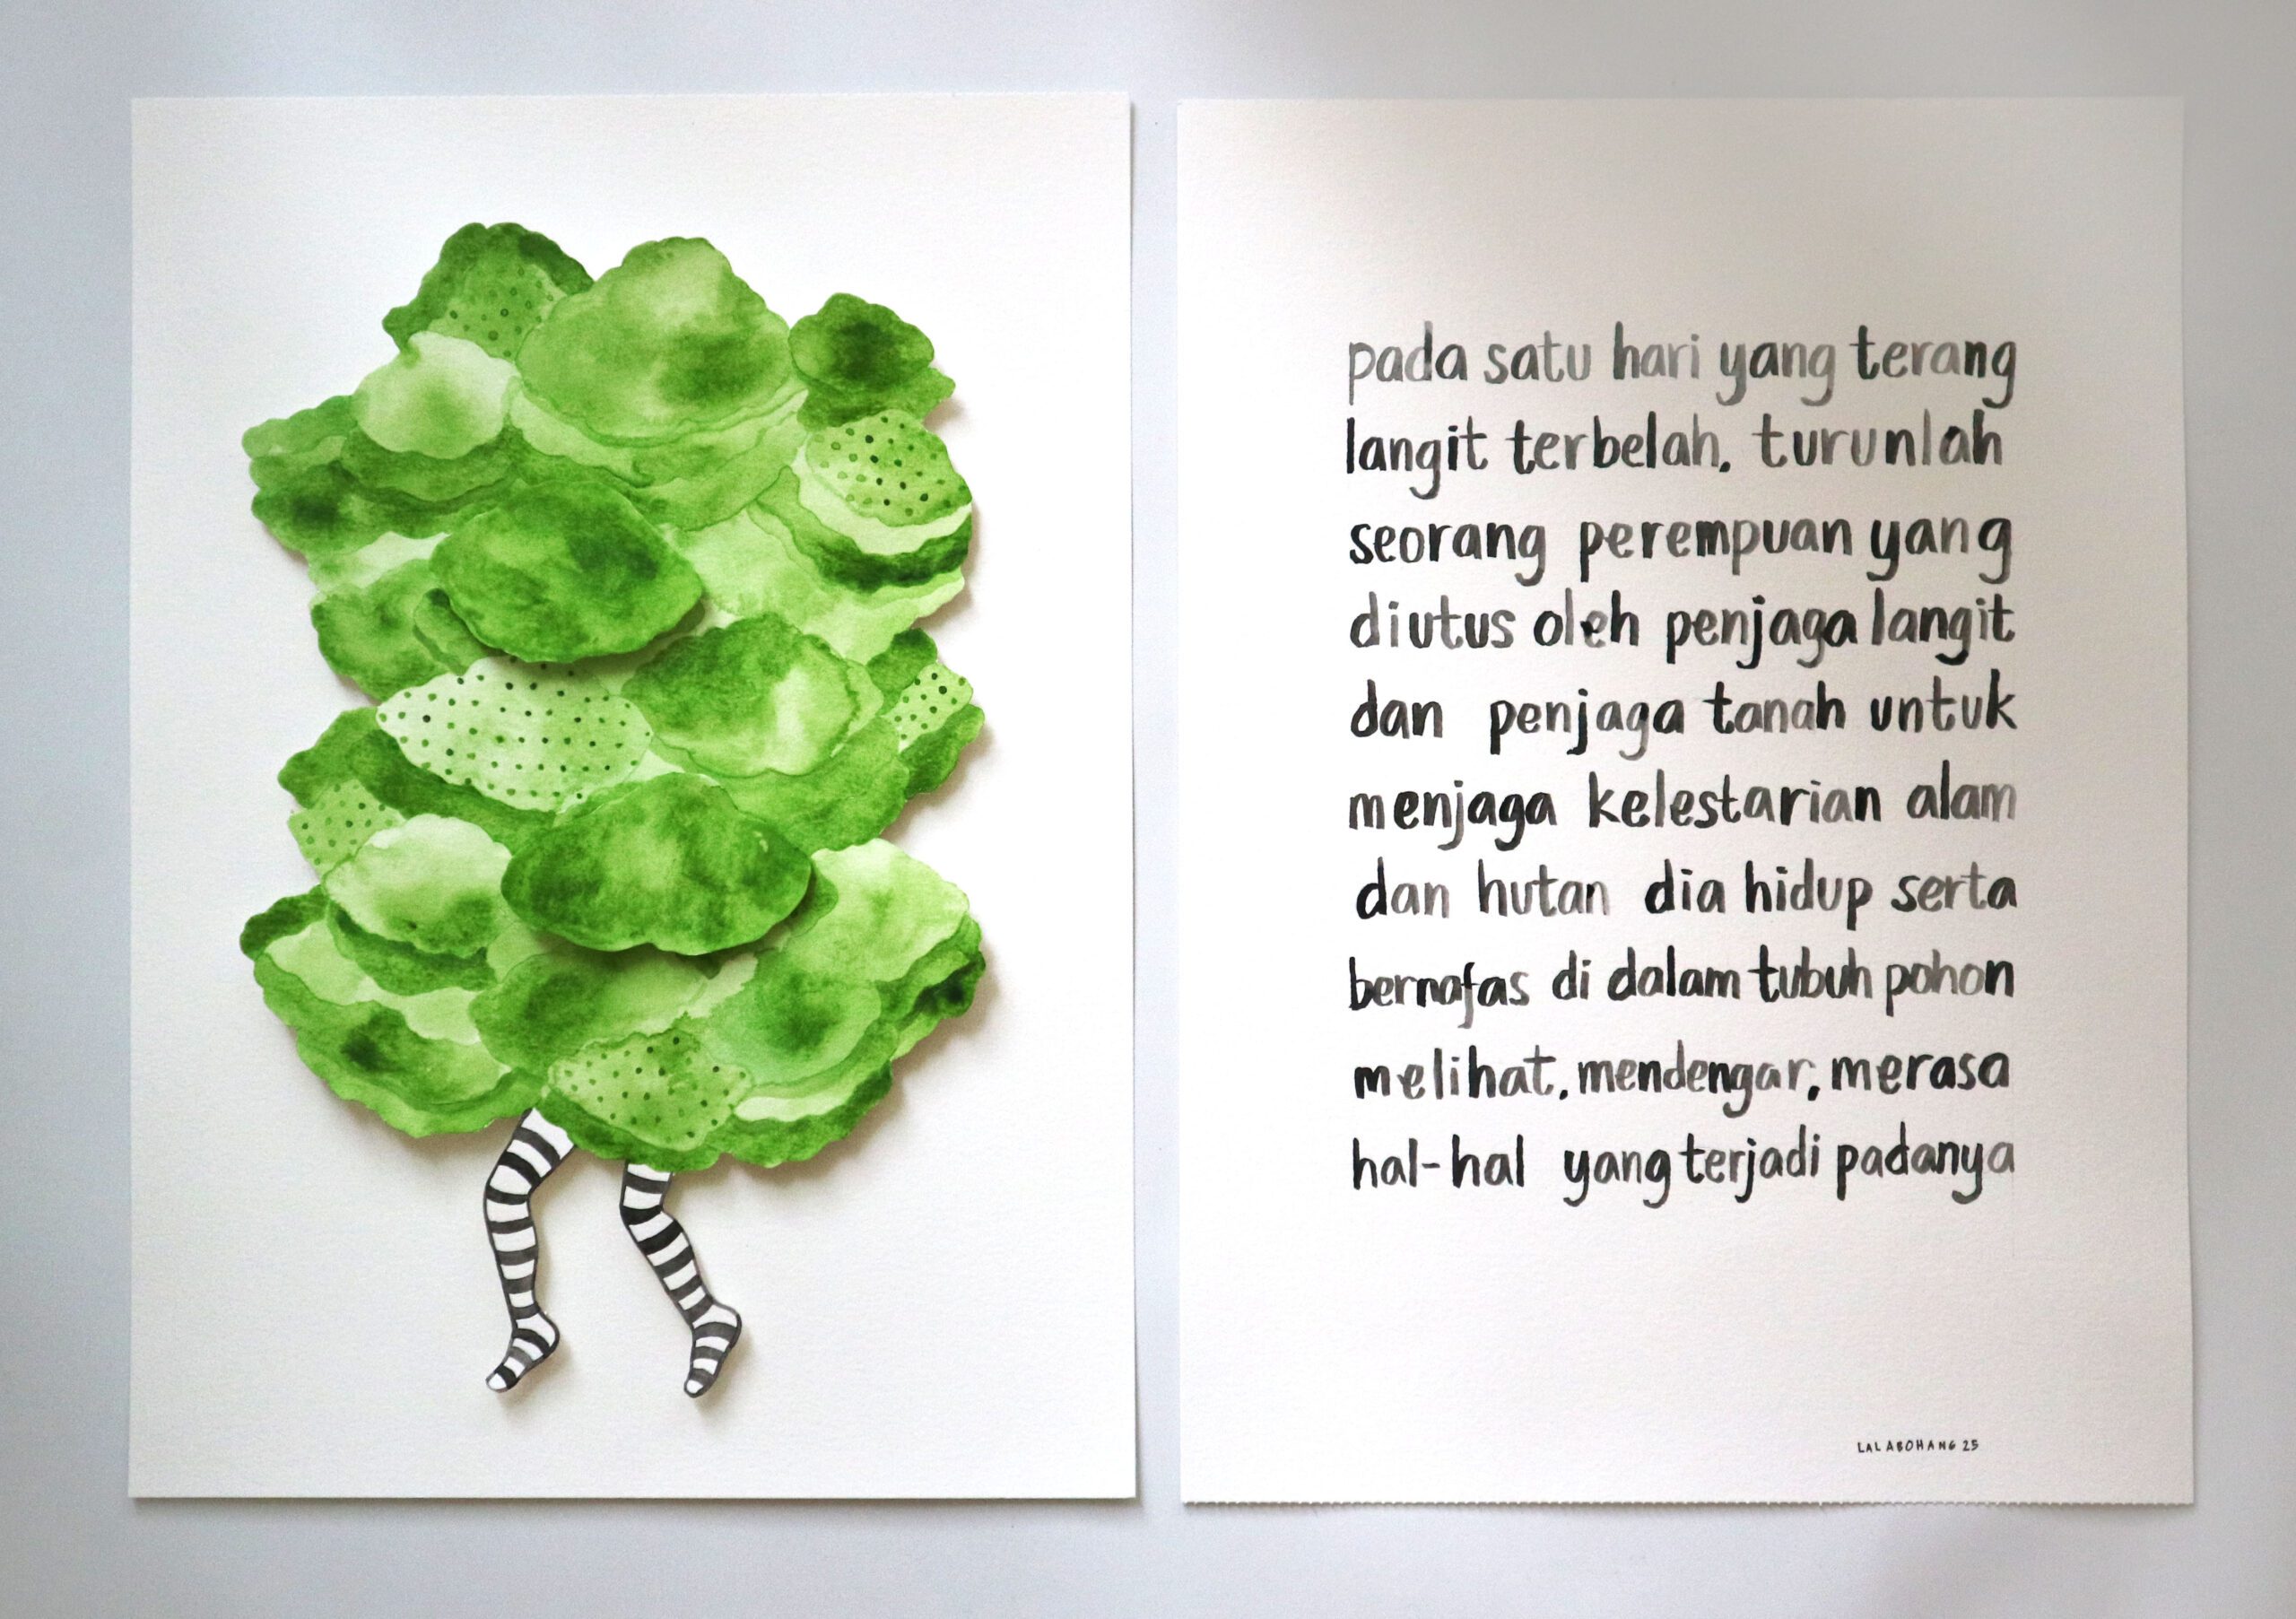 pada satu hari yang terang
langit terbelah. turunlah
seorang perempuan yang
diutus oleh penjaga langit
dan penjaga tanah untuk
menjaga kelestarian alam
dan hutan dia hidup serta
bernafas di dalam tubuh pohon
melihat, mendengar, merasa
hal-hal yang terjadi padanya
LALABOHANG 25